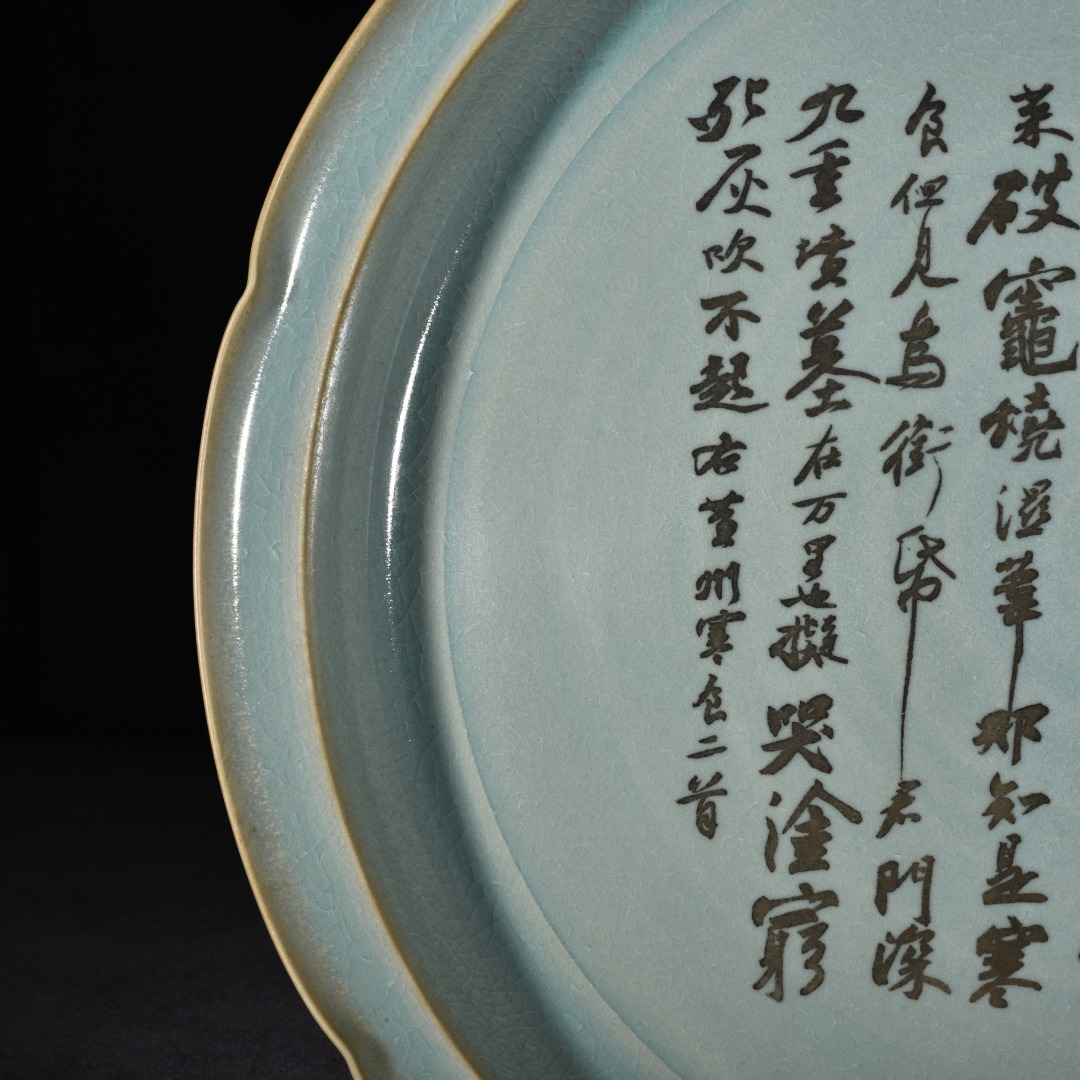 菜破竈燒濕葦那知是寒
食但見烏銜帋君門深
九重墳墓在万里也擬哭塗窮
死灰吹不起右黃州寒食二首